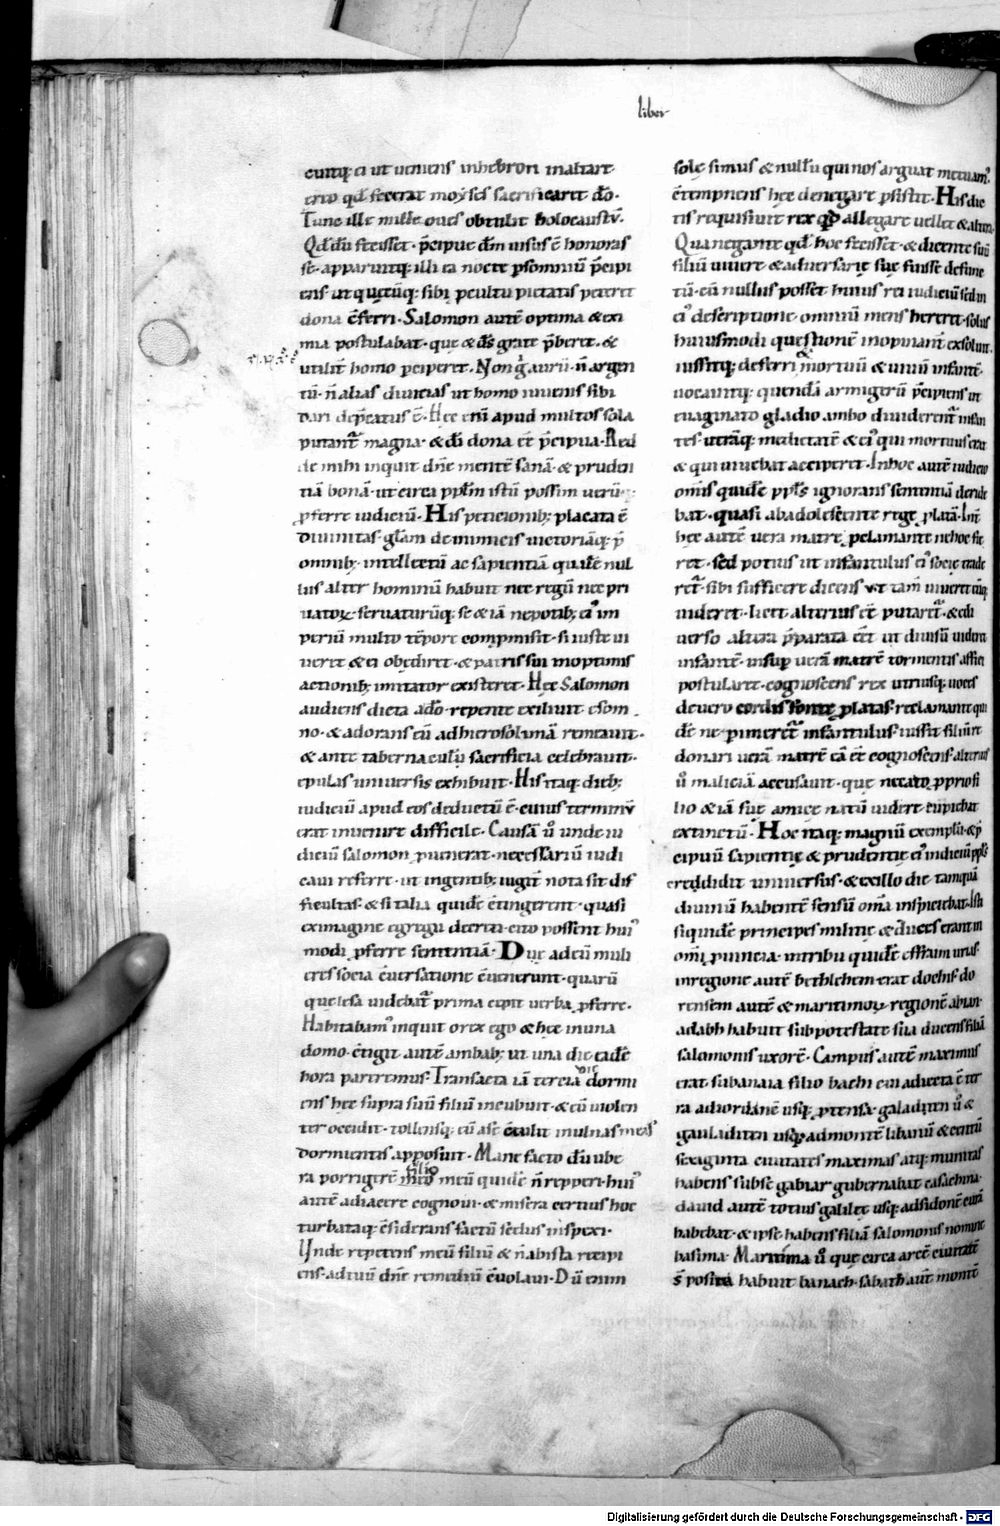 liber
euitq; ei ut ueniens inhebron inaltari
ereo qd̄ fecerat moyses sacrificaret dō.
Tunc ille mille oues obtulit holocaustū.
Qd̄ dū fecisset. p̄cipue dm̄ uisus ē honoras
se. apparuitq; illi ea nocte ꝑsomniū p̄cipi
ens ut quęcūq; sibi ꝓcultu pietatis peteret
dona c̄ferri. Salomon autē optima & exi
mia postulabat. que & ds̄ grate p̄beret. &
utilit̄ homo ꝑciperet. Non g̊ aurū. n̄ argen
tū. n̄ alias diuicias ut homo iuuenis sibi
dari dep̄catus ē. Hęc eni apud multos sola
putant̄ magna. & dī dona ēē p̄cipua. Red
de mihi inquit dn̄e mentē sanā. & pruden
tiā bonā. ut circa pplm̄ istū possim uerū
ꝓferre iudiciū. His peticionib; placata ē
diuinitas. glam̄ de inimicis uictoriāq; p̄
omnib; intellectū ac sapientiā qualē nul
lus alter hominū habuit nec regū nec pri
uatoꝝ. seruaturūq; se & iā nepotib; ei' im
periū multo tēpore comp̄misit. si iuste ui
ueret & ei obędiret. & patris sui inoptimis
actionib; imitator existeret. Hęc Salomon
audiens dicta adō. repente exiliuit esom
no. & adorans eū adhierosolimā remeauit.
& ante tabernaculū sacrificia celebrauit.
epulas uniuersis exhibuit. His itaq; dieb;
iudiciū apud eos deductū ē. cuius terminū
erat inuenire difficile. Causā ū unde iu
diciū salomon ꝓuenerat. necessariū iudi
caui referre. ut ingentib; iugit̄ nota sit dif
ficultas. & si talia quidē c̄tingerent. quasi
eximagine egregii decreti. cito possent hui'
modi ꝓferre sententiā. Duę adeū muli
eres socia c̄uersatione c̄uenerunt. quarū
que lesa uidebat̄ prima cepit uerba ꝓferre.
Habitabam' inquit o rex ego & hęc inuna
domo. c̄tigit autē ambab; ut una die eadē
hora pareremus. Transacta iā tercia die dormi
ens hęc supra suū filiū incubuit. & eū uiolen
ter occidit. tollensq; eū a se. c̄tulit inulnas meas
dormientis apposuit. Mane facto dū ube
ra porrigerē filio meo meū quidē n̄ repperi. hui'
autē adiacere cognoui. & misera certius hoc
turbataq; c̄siderans factū scelus inspexi.
Unde repetens meū filiū & n̄ abista recipi
ens. ad tuū dn̄e remediū c̄uolaui. Dū enim
solę simus & nullū qui nos arguat metuam'.
c̄tempnens hęc denegare ꝑsistit. His dic
tis requisiuit rex qd̄ allegare uellet & altera.
Qua negante qd̄ hoc fecisset. & dicente suū
filiū uiuere & aduersarię suę fuisse defunc
tū. cū nullus posset huius rei iudiciū sed in
ei' descriptione omniū mens hereret. solus
huiusmodi questionē inopinant̄ exsoluit.
iussitq; deferri & mortuū & uiuū infantē.
uocauitq; quendā armigerū p̄cipiens ut
euaginato gladio ambo diuiderent̄ infan
tes. utrāq; medietatē & ei' qui mortuus erat
& qui uiuebat acciperet. In hoc autē iudicio
omīs quidē ppls̄ ignorans sententiā deride
bat. quasi abadolescente rege ꝓlatā. Int̄
hęc autē uera matre ꝓclamante nehoc fie
ret. sed potius ut infantulus ei' socię trade
ret̄. sibi sufficere dicens ut tam̄ uiueret eūq;
uideret. licet alterius ēē putaret̄. & edi
uerso altera p̄parata ēēt ut diuisū uideret
infantē. insuꝑ ueiā matrē tormentis affici
postularet. cognoscens rex utriusq; uoces
deuero cordis fonte ꝓlatas. reclamante qui
dē ne ꝑimeret̄ infantulus. iussit filiū et
donari uerā matrē eā ēē cognoscens. alterius
ū maliciā accusauit. que necato ꝓprio fi
lio & iā suę amicę natū uidere cupiebat
extinctū. Hoc itaq; magnū exemplū. & p̄
cipuū sapientię & prudentię ei' indiciū ppls̄
credidit uniuersus. & exillo die tamquā
diuinū habentē sensū om̄a inspiciebat. Isti
siquidē principes militię & duces erant in
omī ꝓuincia. intribu quidē effraim urus.
inregione autē bethlehem erat dochus. do
rensem autē & maritimoꝝ regionē abian
adabh habuit sub potestate sua ducens filiā
salomonis uxorē. Campus autē maximus
erat sub anaia filio bachi cui adiecta ē ter
ra adiordanē usq; ꝓtensa. galaditen ū &
gauladiten usq; admontē libanū & centū
sexaginta ciuitates maximas atq; munitas
habens subse gabiar gubernabat easachina
dauid autē totius galilee usq; adsidonē curā
habebat. & ipse habens filiā salomonis nomine
basima. Maritima ū que circa arcē ciuitatē
ē posita habuit banach. sabath aut̄ montē